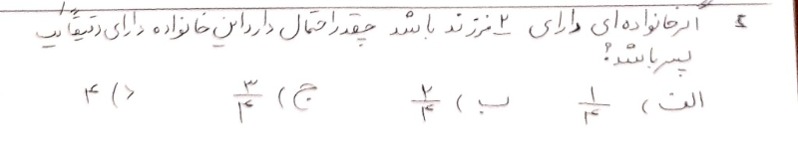 ۲ اگر خانواده ای دارای ۲ فرزند باشد چقدر احتمال دارد این خانواده دارای دقیقا یک
پسر باشد؟
الف) ۱/۴ ب) ۲/۴ ج) ۳/۴ د) ۴